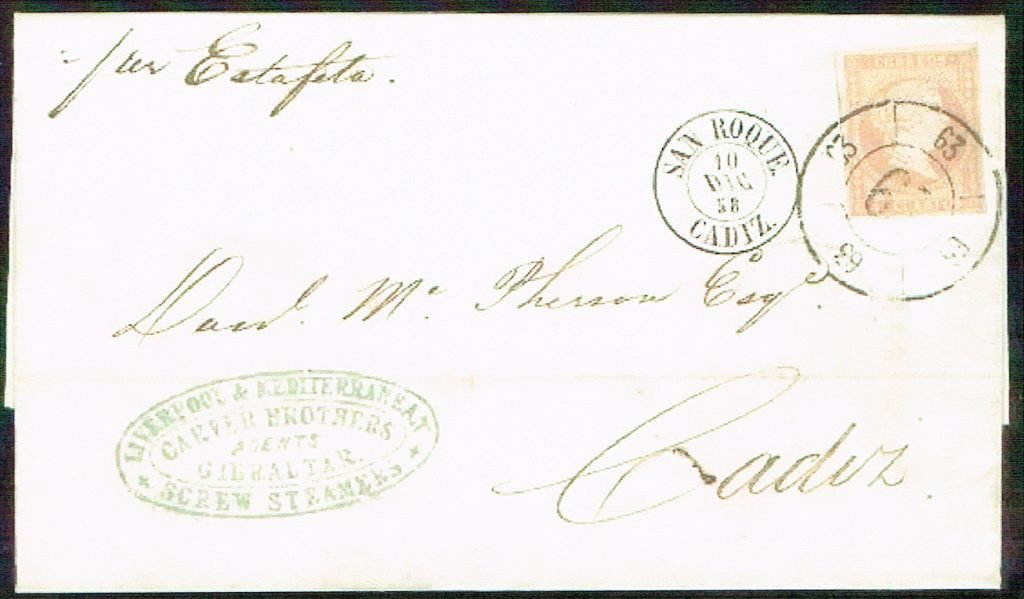 per Estafeta.
SAN ROQUE
10
DIC
58
CADIZ.
63
63
63
63
Davd. Mc. Pherson Esqr.
LIVERPOOL & MEDITERRANEAN
CARVER BROTHERS
AGENTS
GIBRALTAR.
SCREW STEAMERS
Cadiz.